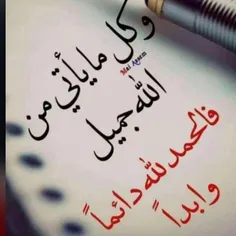 وكل ما يأتي من
الله جميل
Mai Ayasra
فالحمد لله دائماً
وابداً